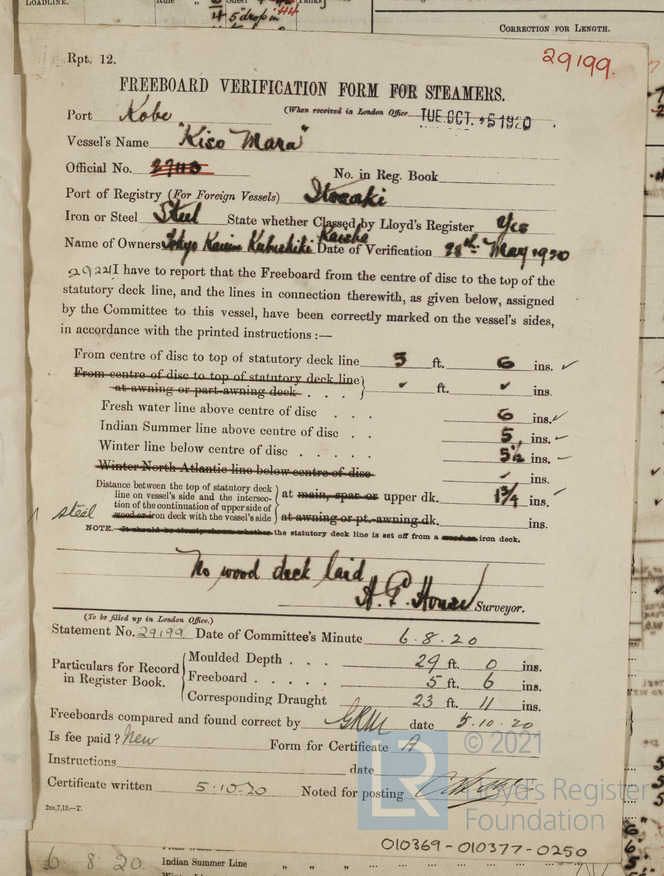 LOADLINE.
5" drop in
CORRECTION FOR LENGTH.
Rpt. 12.
29199.
FREEBOARD VERIFICATION FORM FOR STEAMERS.
Port Kobe (When received in London Office TUE. OCT. 5 1920
Vessel's Name "Kiso Maru"
Official No.
No. in Reg. Book
Port of Registry (For Foreign Vessels) Itozaki
Iron or Steel Steel State whether Classed by Lloyd's Register Yes
Name of Owners Tokyo Kaiun Kabushiki Kaisha Date of Verification 28th May 1920
I have to report that the Freeboard from the centre of disc to the top of the
statutory deck line, and the lines in connection therewith, as given below, assigned
by the Committee to this vessel, have been correctly marked on the vessel's sides,
in accordance with the printed instructions :—
From centre of disc to top of statutory deck line 5 ft. 6 ins. ✓
From centre of disc to top of statutory deck line
at awning or part-awning deck . . . ✓ ft. ✓ ins.
Fresh water line above centre of disc . . . 6 ins. ✓
Indian Summer line above centre of disc . . 5 ins. ✓
Winter line below centre of disc . . . . . 5½ ins. ✓
Winter North Atlantic line below centre of disc
Distance between the top of statutory deck
line on vessel's side and the intersec-
tion of the continuation of upper side of
steel wood or iron deck with the vessel's side
at main, spar or upper dk. 1¾ ins. ✓
at awning or pt.-awning dk. ins.
NOTE. It should be clearly shown whether the statutory deck line is set off from a wooden or iron deck.
No wood deck laid
A. P. House Surveyor.
(To be filled up in London Office.)
Statement No. 29199 Date of Committee's Minute 6.8.20
Particulars for Record
in Register Book.
Moulded Depth . . . 29 ft. 0 ins.
Freeboard . . . . . 5 ft. 6 ins.
Corresponding Draught 23 ft. 11 ins.
Freeboards compared and found correct by GRM date 5.10.20
Is fee paid? New Form for Certificate A
Instructions date
Certificate written 5.10.20 Noted for posting
2m,7,19.—T.
© 2021
LR
Lloyd's Register
Foundation
010369-010377-0250
6.8.20. Indian Summer Line